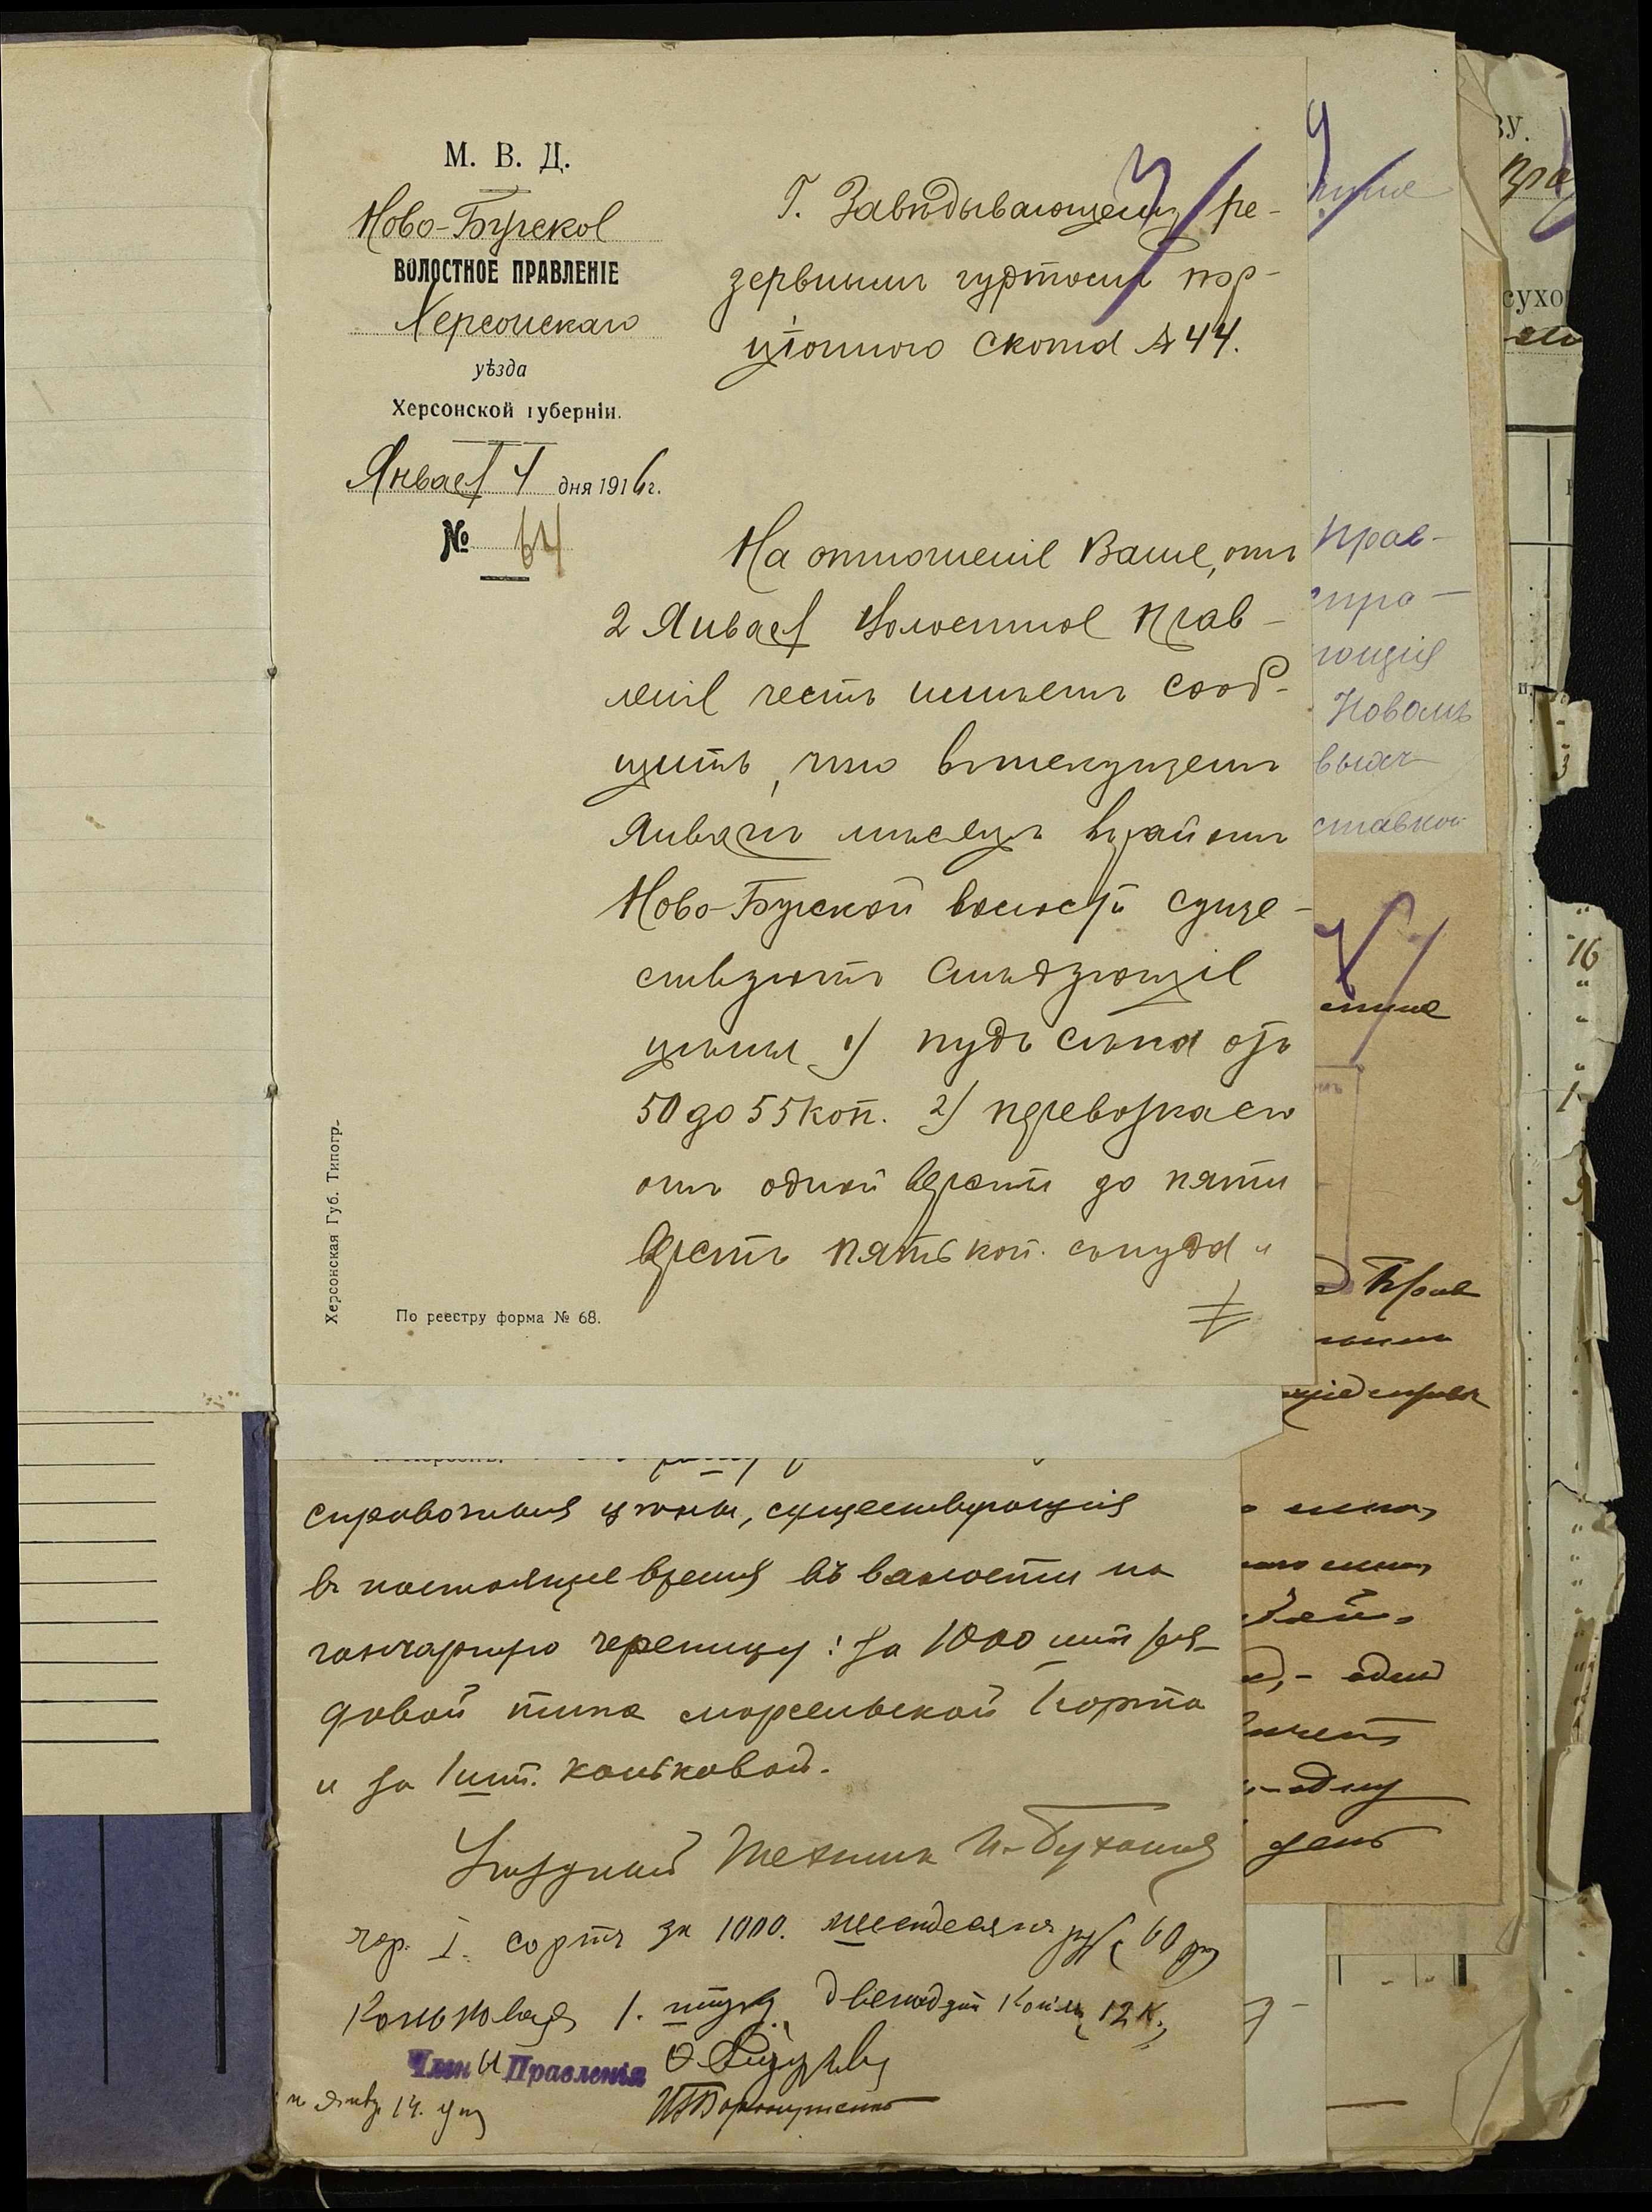 М. В. Д.
Ново-Бугское
ВОЛОСТНОЕ ПРАВЛЕНІЕ
Херсонскаго
уѣзда
Херсонской губерніи.
Января 4 дня 1916 г.
№ 64
Г. Завѣдывающему ре-
зервнымъ гуртомъ пор-
ціонного скота № 44.
На отношеніе Ваше, отъ
2 Января Волостное Прав-
леніе честь имѣетъ сооб-
щить, что въ текущемъ
Январѣ мѣсяцѣ въ районѣ
Ново-Бугской волости суще-
ствуютъ слѣдующіе
цѣны 1) пудъ сѣна отъ
50 до 55 коп. 2) перевозка его
отъ одной версты до пяти
верстъ пять коп. съ пуда и
Херсонская Губ. Типогр.
По реестру форма № 68.
справочныя цѣны, существующія
въ настоящее время въ волости на
гончарную черепицу: за 1000 шт ря-
довой типа марсельской I сорта
и за 1 шт. коньковой.
Уѣздный Техникъ
чер. I. сортъ за 1000. шестдесятъ руб. 60 р
Коньковая 1. штук. двенадцать Коп. 12 к.
Члены Правленія
Прав-
спра-
ющія
Новомъ
ставкой
Прав
одну
день
сухо
16